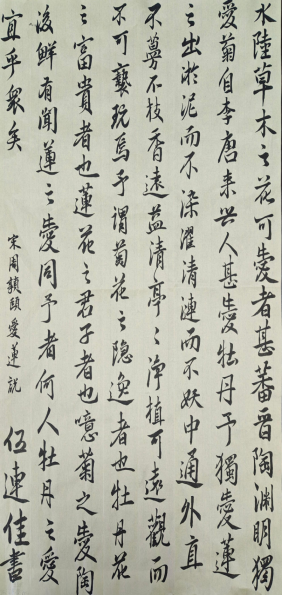 水陸草木之花可愛者甚蕃晉陶淵明獨
愛菊自李唐来世人甚愛牡丹予獨愛蓮
之出淤泥而不染濯清漣而不妖中通外直
不蔓不枝香遠益清亭々淨植可遠觀而
不可褻玩焉予謂菊花之隐逸者也牡丹花
之富貴者也蓮花之君子者也噫菊之愛陶
後鮮有聞蓮之愛同予者何人牡丹之愛
宜乎衆矣
宋周頤愛蓮説
伍連佳書